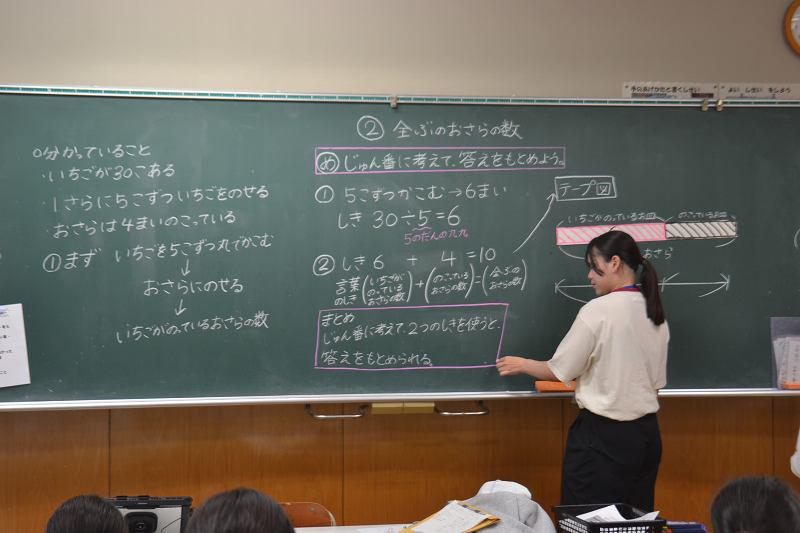 手のあげかたと書くしせい
よい しせい をしよう
○分かっていること
・いちごが30こある
・1さらに5こずついちごをのせる
・おさらは4まいのこっている
①まず いちごを5こずつ丸でかこむ
↓
おさらにのせる
↓
いちごがのっているおさらの数
② 全ぶのおさらの数
め じゅん番に考えて、答えをもとめよう。
① 5こずつかこむ→6まい
しき 30÷5=6
5のだんの九九
② しき 6 + 4 =10
言葉のしき (いちごがのっているおさらの数)+(のこっているおさらの数)=(全ぶのおさらの数)
まとめ
じゅん番に考えて、2つのしきを使うと、
答えをもとめられる。
テープ図
いちごがのっているお皿 のこっているお皿
おさら